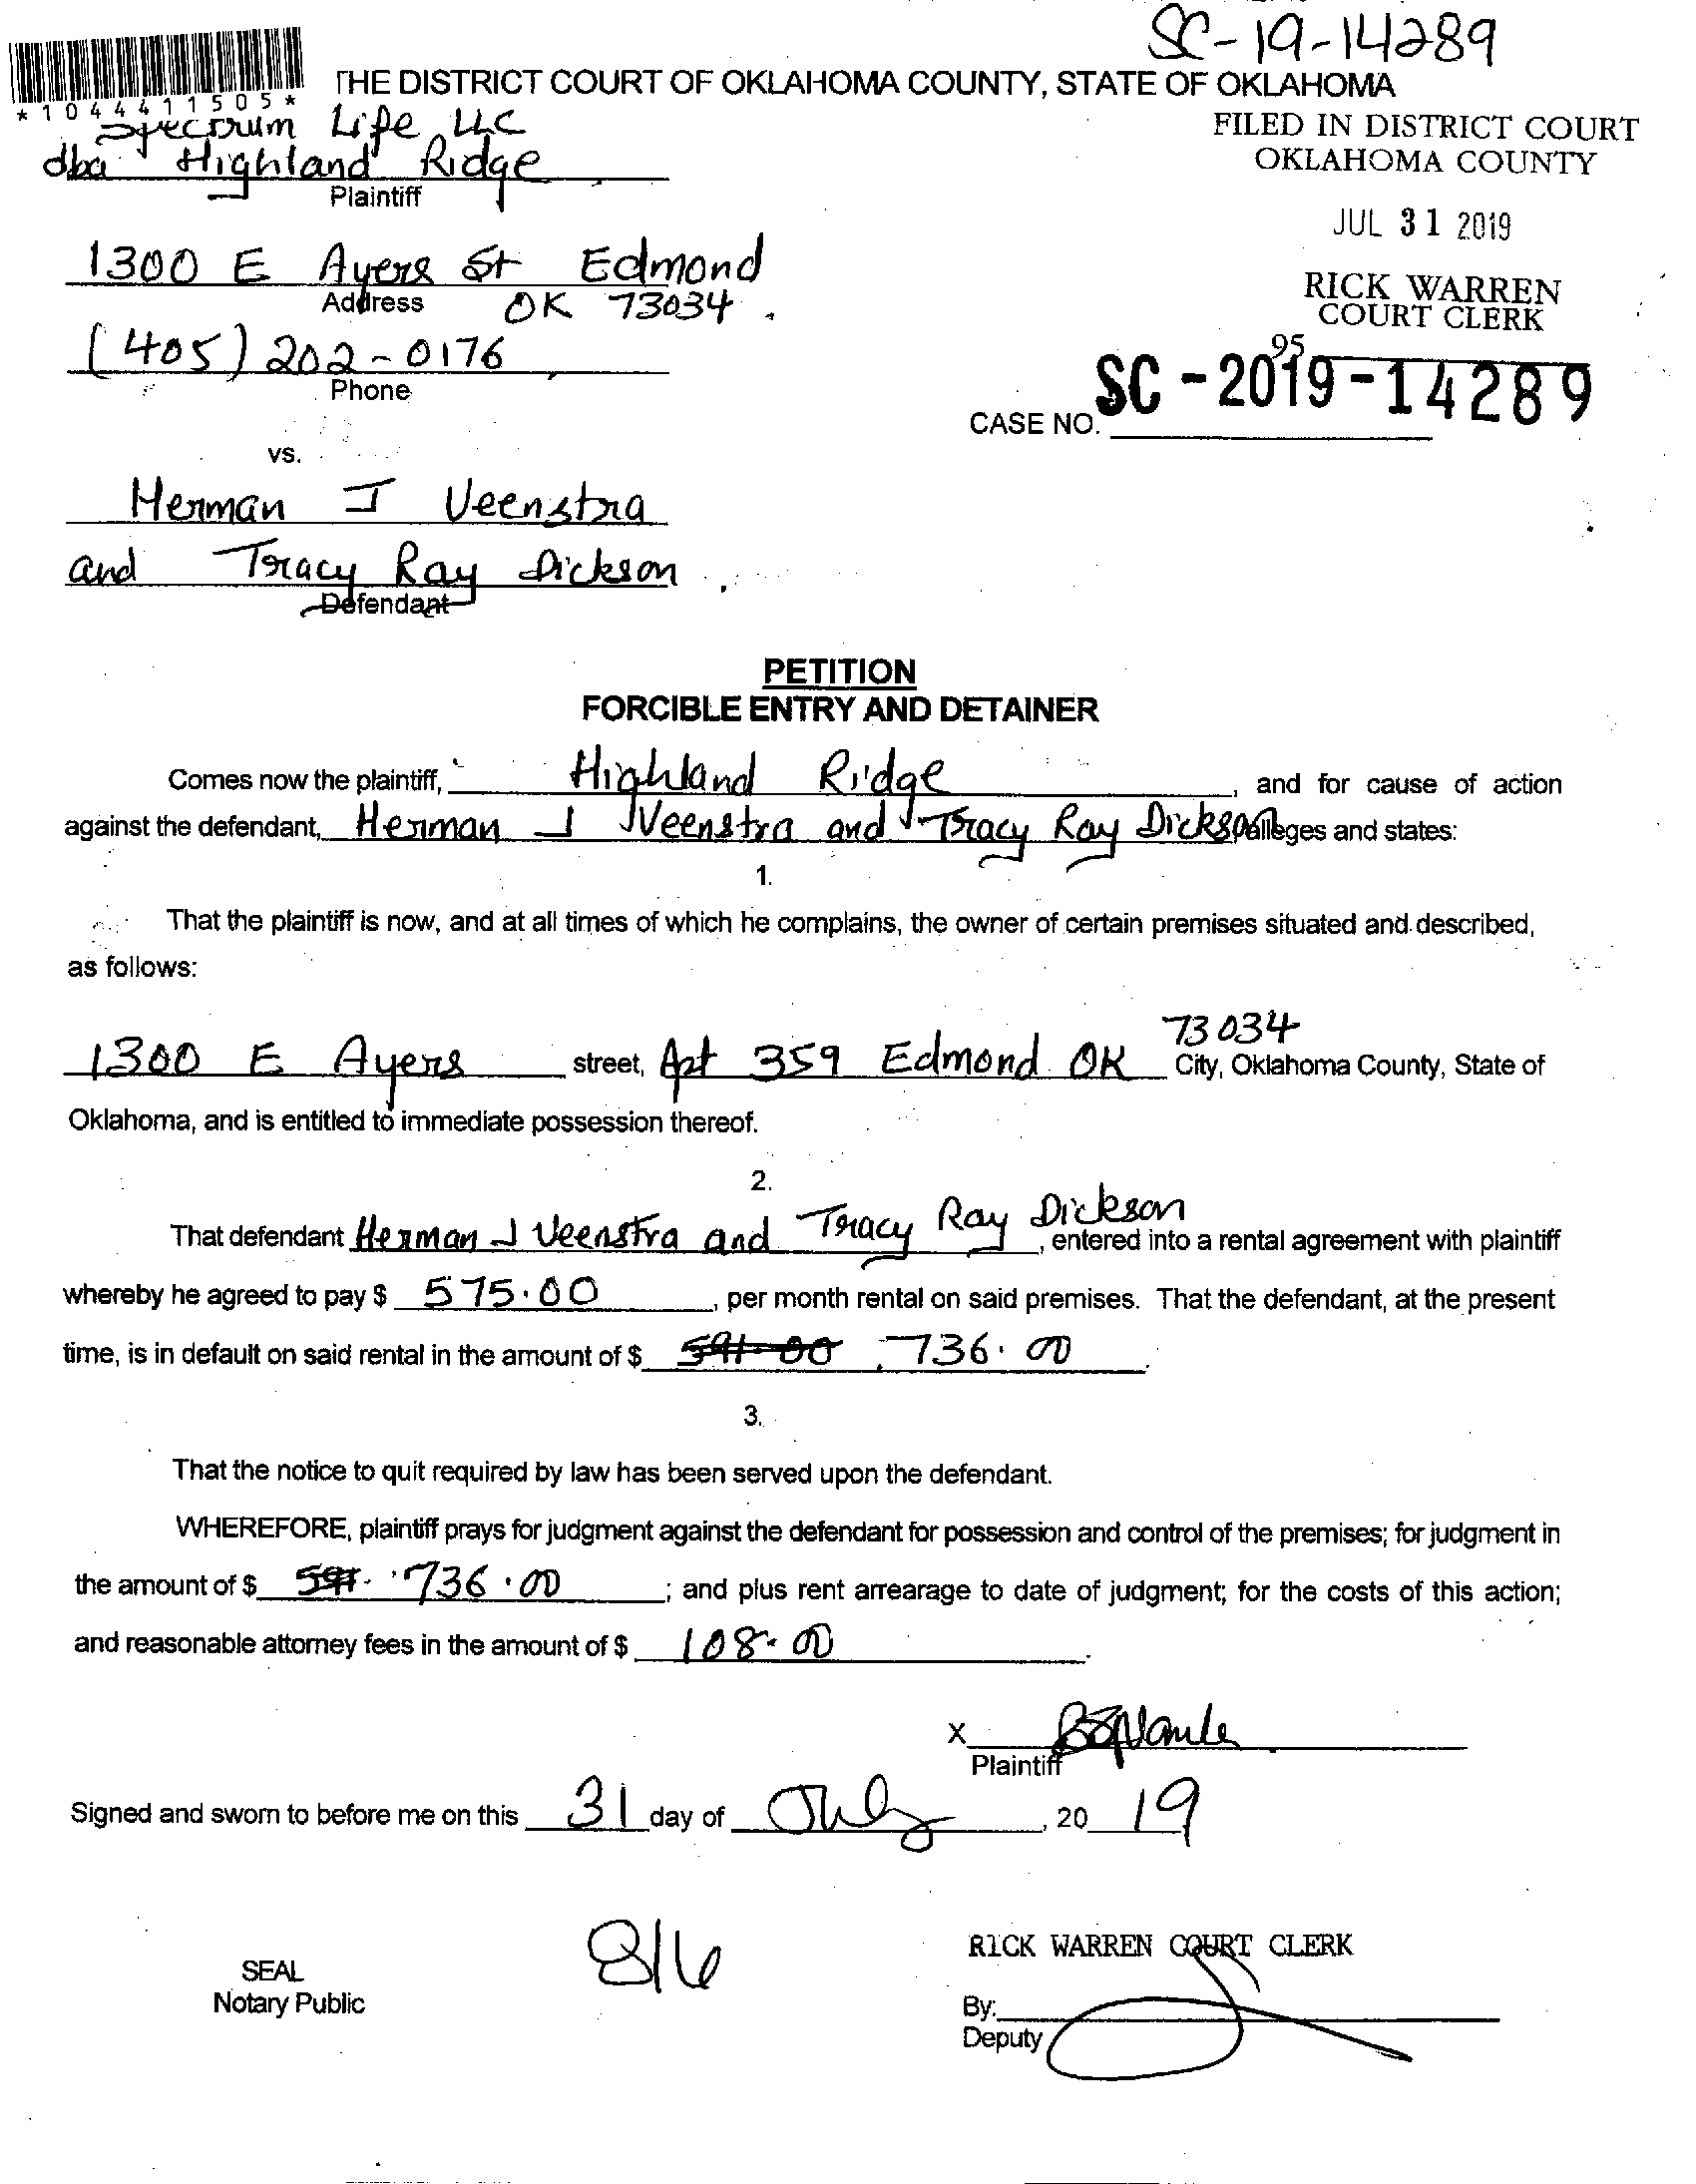 SC-19-14289
THE DISTRICT COURT OF OKLAHOMA COUNTY, STATE OF OKLAHOMA
*1044411505*
Spectrum Life LLC
dba Highland Ridge
Plaintiff
FILED IN DISTRICT COURT
OKLAHOMA COUNTY
JUL 31 2019
RICK WARREN
COURT CLERK
95
1300 E Ayers St Edmond
Address OK 73034
(405) 202-0176
Phone
CASE NO. SC-2019-14289
vs.
Herman J Veenstra
and Tracy Ray Dickson
Defendant
PETITION
FORCIBLE ENTRY AND DETAINER
Comes now the plaintiff, Highland Ridge, and for cause of action
against the defendant, Herman J Veenstra and Tracy Ray Dickson alleges and states:
1.
That the plaintiff is now, and at all times of which he complains, the owner of certain premises situated and described,
as follows:
73034
1300 E Ayers street, Apt 359 Edmond OK City, Oklahoma County, State of
Oklahoma, and is entitled to immediate possession thereof.
2.
That defendant Herman J Veenstra and Tracy Ray Dickson, entered into a rental agreement with plaintiff
whereby he agreed to pay $ 575.00, per month rental on said premises. That the defendant, at the present
time, is in default on said rental in the amount of $ 591.00 736.00.
3.
That the notice to quit required by law has been served upon the defendant.
WHEREFORE, plaintiff prays for judgment against the defendant for possession and control of the premises; for judgment in
the amount of $ 591. 736.00; and plus rent arrearage to date of judgment; for the costs of this action;
and reasonable attorney fees in the amount of $ 108.00.
X
Plaintiff
Signed and sworn to before me on this 31 day of July, 2019
816
SEAL
Notary Public
RICK WARREN COURT CLERK
By:
Deputy